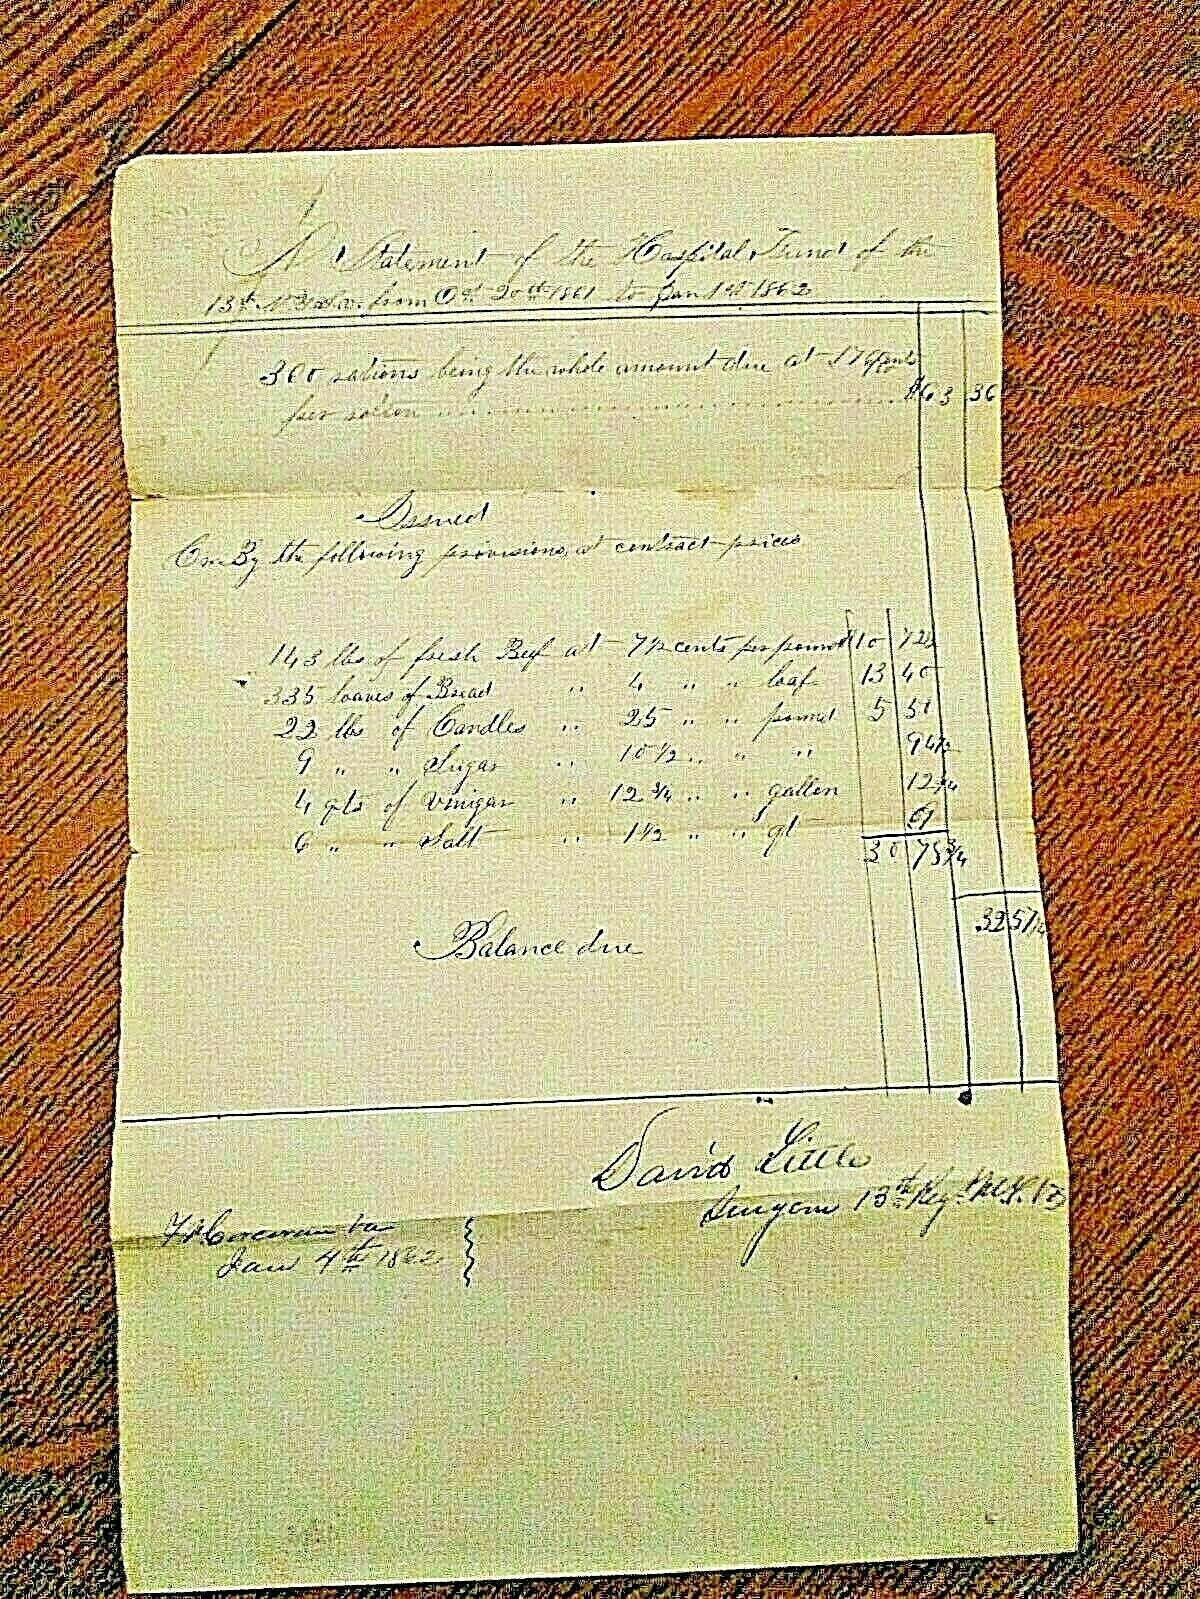 A Statement of the Hospital Fund of the
13th from Oct 20th 1861 to Jan 1st 1862
360 rations being the whole amount due at 17 6/10 cents
per ration $63 36
Issued
By the following provisions at contract prices
143 lbs of fresh Beef at 7½ cents per pound $10 72½
335 loaves of Bread " 4 " " loaf 13 40
22 lbs of Candles " 25 " " pound 5 50
9 " " Sugar " 10½ " " " 94½
4 qts of Vinigar " 12¾ " " gallon 12¾
6 " " Salt " 1½ " " qt 9
30 75¾
Balance due
David Little
Surgeon 13th Reg.
Jan 4th 1862